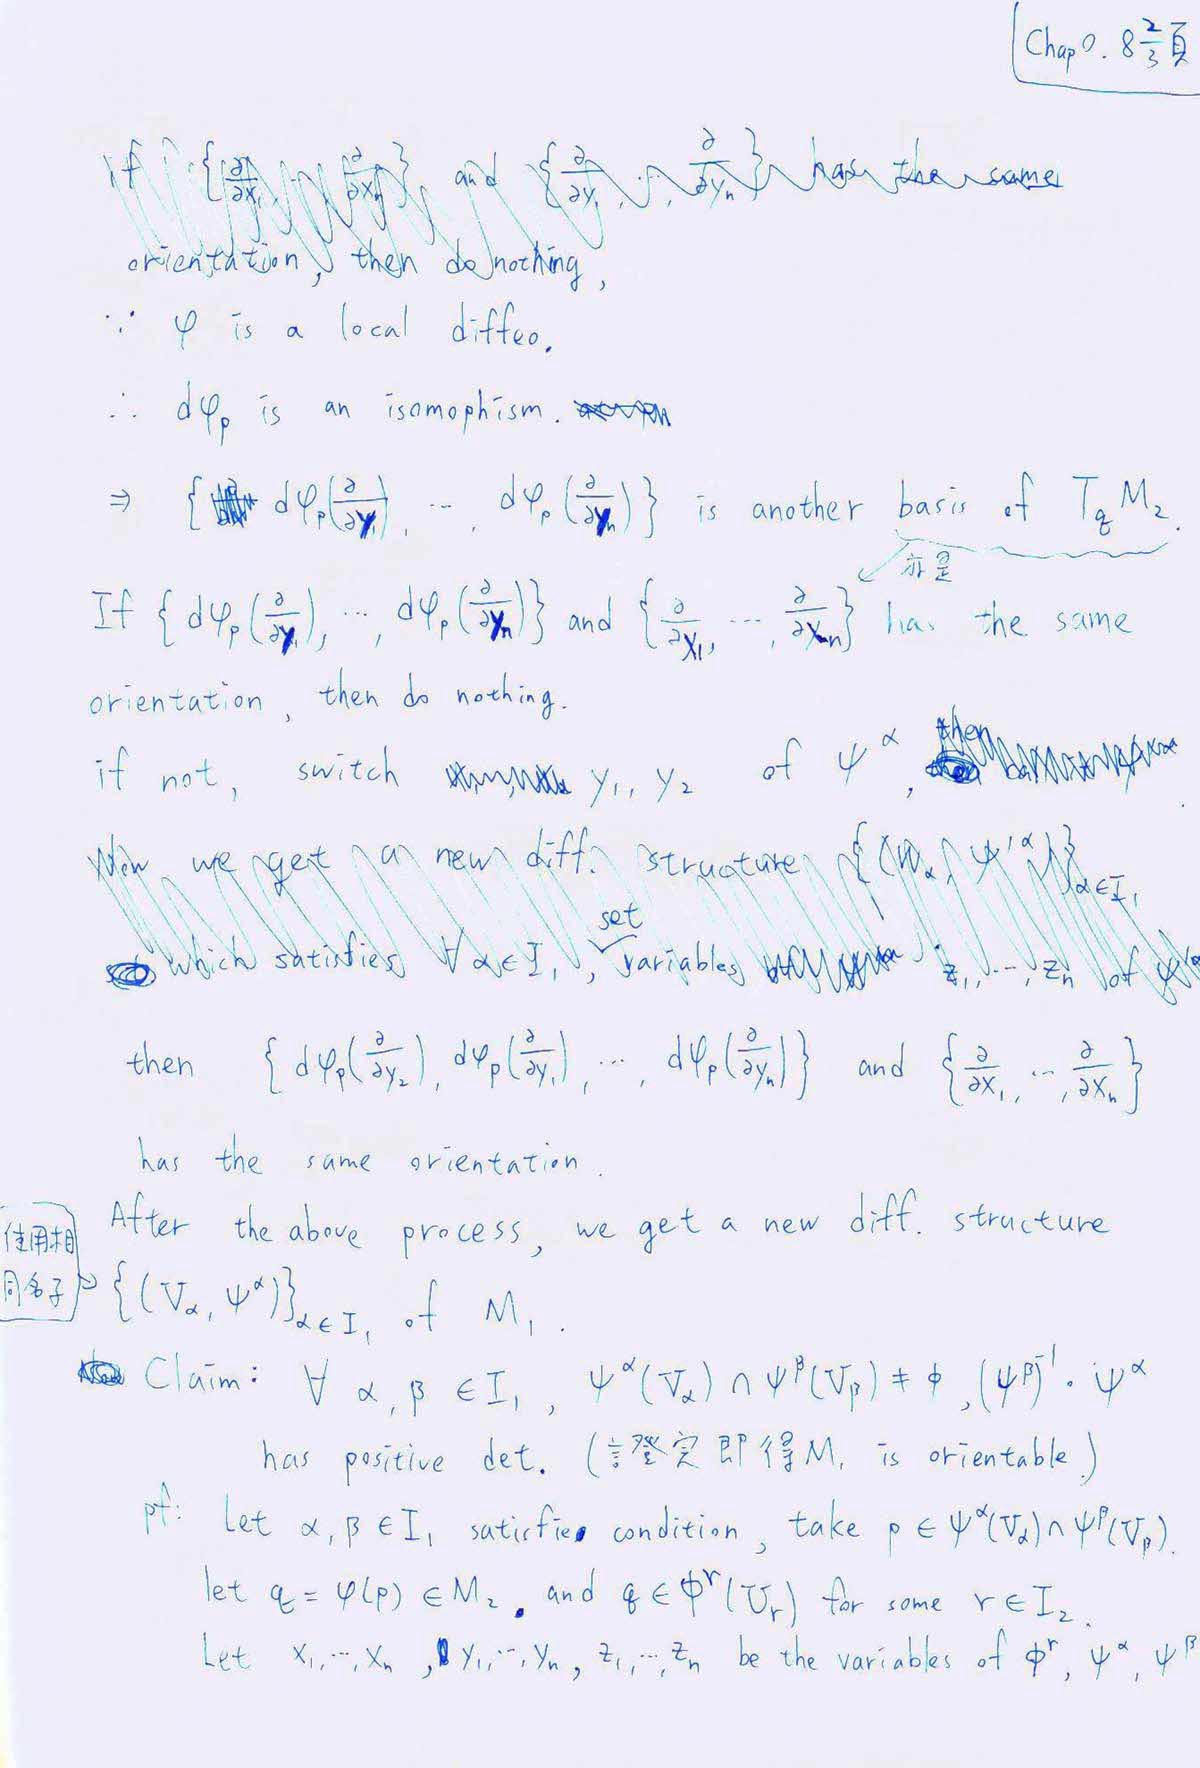 Chap 0. 8 2/3 頁
if { ∂/∂x₁, ..., ∂/∂xₙ } and { ∂/∂y₁, ..., ∂/∂yₙ } has the same
orientation, then do nothing,
∵ φ is a local diffeo.
∴ dφₚ is an isomophism.
⇒ { dφₚ(∂/∂y₁), ..., dφₚ(∂/∂yₙ) } is another basis of T_q M₂.
亦是
If { dφₚ(∂/∂y₁), ..., dφₚ(∂/∂yₙ) } and { ∂/∂x₁, ..., ∂/∂xₙ } has the same
orientation, then do nothing.
if not, switch y₁, y₂ of ψ^α, then
Now we get a new diff. structure {(W_α, ψ'^α)}_{α∈I₁}
set
which satisfies ∀ α ∈ I₁, variables z₁, ..., zₙ of ψ'^α
then { dφₚ(∂/∂y₂), dφₚ(∂/∂y₁), ..., dφₚ(∂/∂yₙ) } and { ∂/∂x₁, ..., ∂/∂xₙ }
has the same orientation.
After the above process, we get a new diff. structure
使用相
同名子
{(V_α, ψ^α)}_{α∈I₁} of M₁.
Claim: ∀ α, β ∈ I₁, ψ^α(V_α) ∩ ψ^β(V_β) ≠ ϕ, (ψ^β)⁻¹ · ψ^α
has positive det. (證完即得 M₁ is orientable.)
pf: Let α, β ∈ I₁ satisfies condition, take p ∈ ψ^α(V_α) ∩ ψ^β(V_β).
let q = φ(p) ∈ M₂. and q ∈ ϕ^r(U_r) for some r ∈ I₂.
Let x₁, ..., xₙ, y₁, ..., yₙ, z₁, ..., zₙ be the variables of ϕ^r, ψ^α, ψ^β